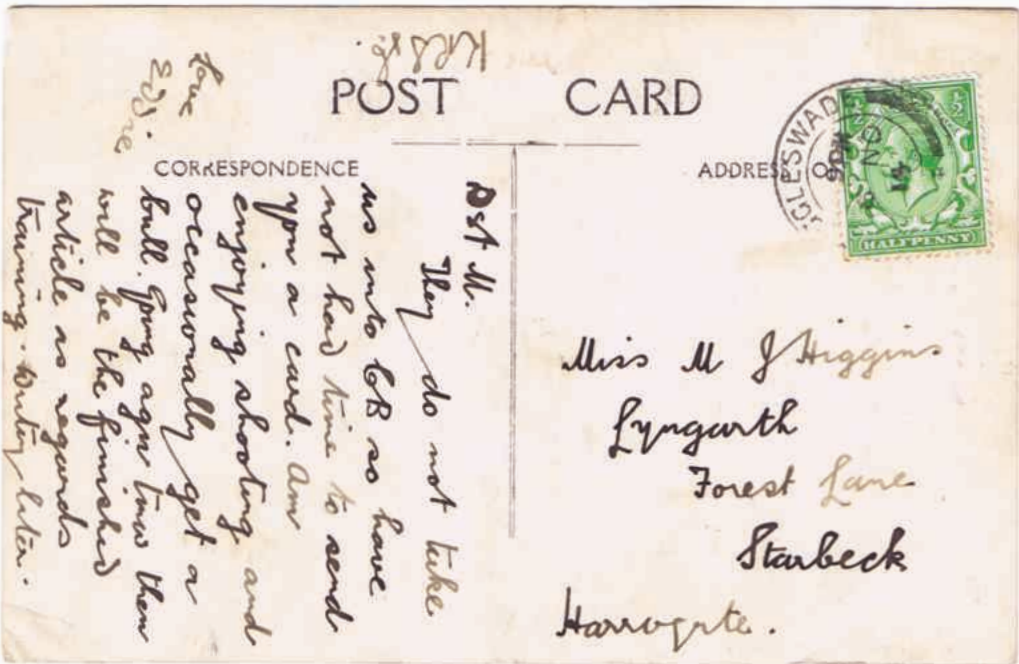 POST CARD
CORRESPONDENCE
ADDRESS O
GLESWAD
HALFPENNY
Dst M.
They do not take
us into CB so have
not had time to send
you a card. Am
enjoying shooting and
occasionally get a
bull. Going agn tmw then
will be the finished
article as regards
training. Writing later.
Love
Eddie
Miss M J Higgins
Lyngarth
Forest Lane
Starbeck
Harrogate.